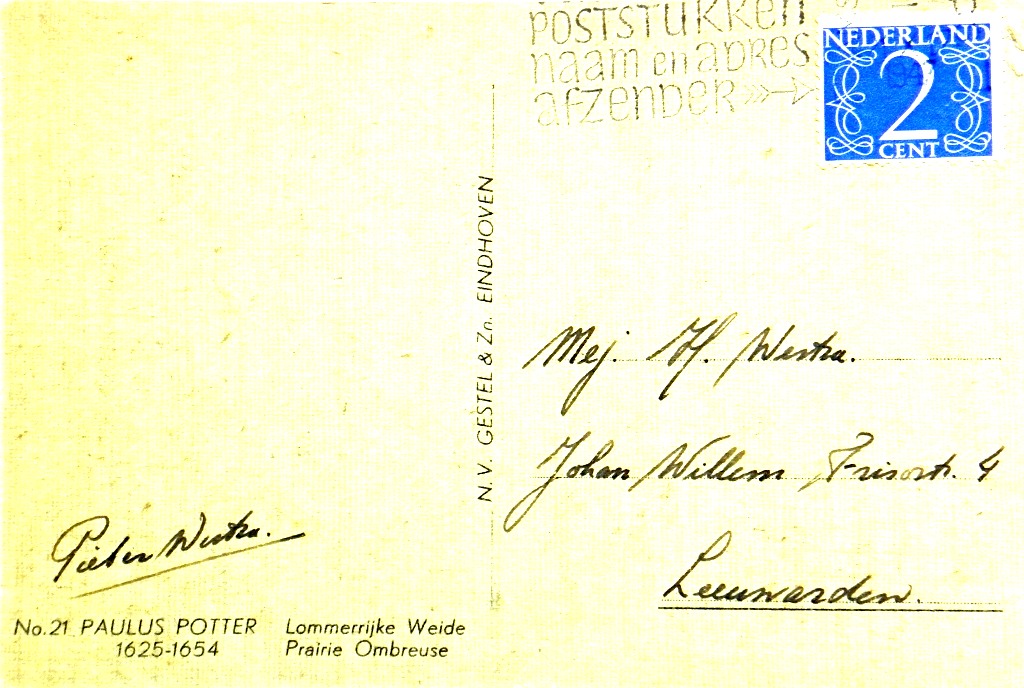 POSTSTUKKEN
naam en adres
afzender
NEDERLAND
2
CENT
N.V. GESTEL & Zn. EINDHOVEN
Mej. H. Westra.
Johan Willem Frisostr. 4
Leeuwarden.
Pieter Westra.
No.21 PAULUS POTTER
1625-1654
Lommerrijke Weide
Prairie Ombreuse